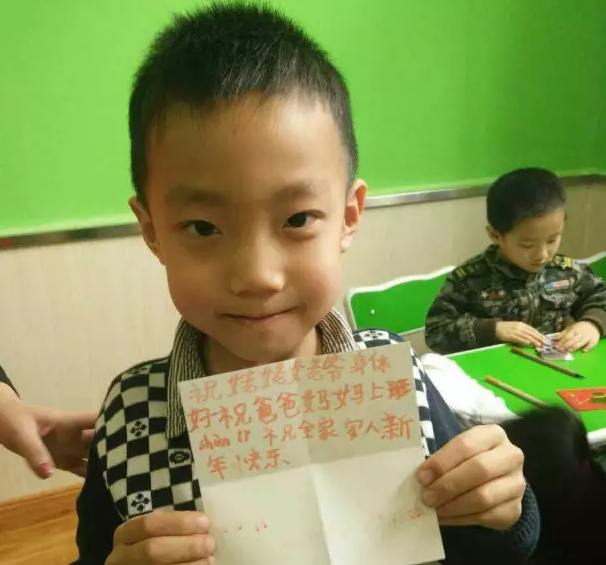 祝姥姥姥爷身体
好祝爸爸妈妈上班
shùn lì 祝全家家人新
年快乐